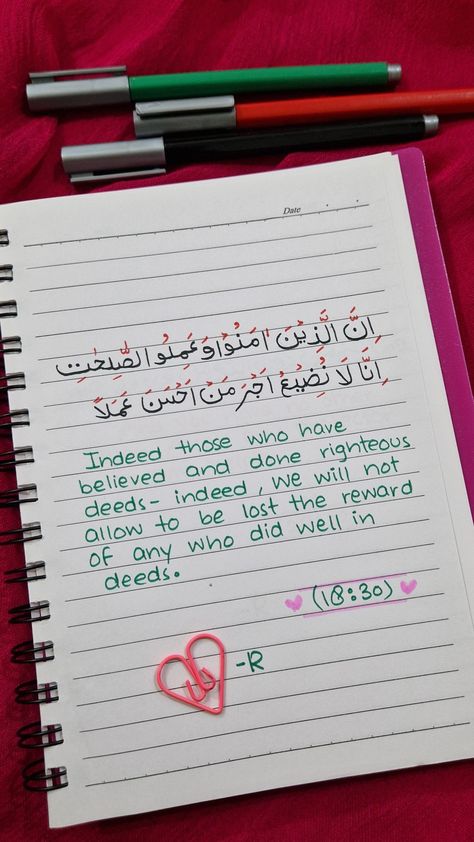 Date
اِنَّ الَّذِيْنَ اٰمَنُوْا وَعَمِلُو الصّٰلِحٰتِ
اِنَّا لَا نُضِيْعُ اَجْرَ مَنْ اَحْسَنَ عَمَلًا
Indeed those who have
believed and done righteous
deeds- indeed, we will not
allow to be lost the reward
of any who did well in
deeds.
(18:30)
-R